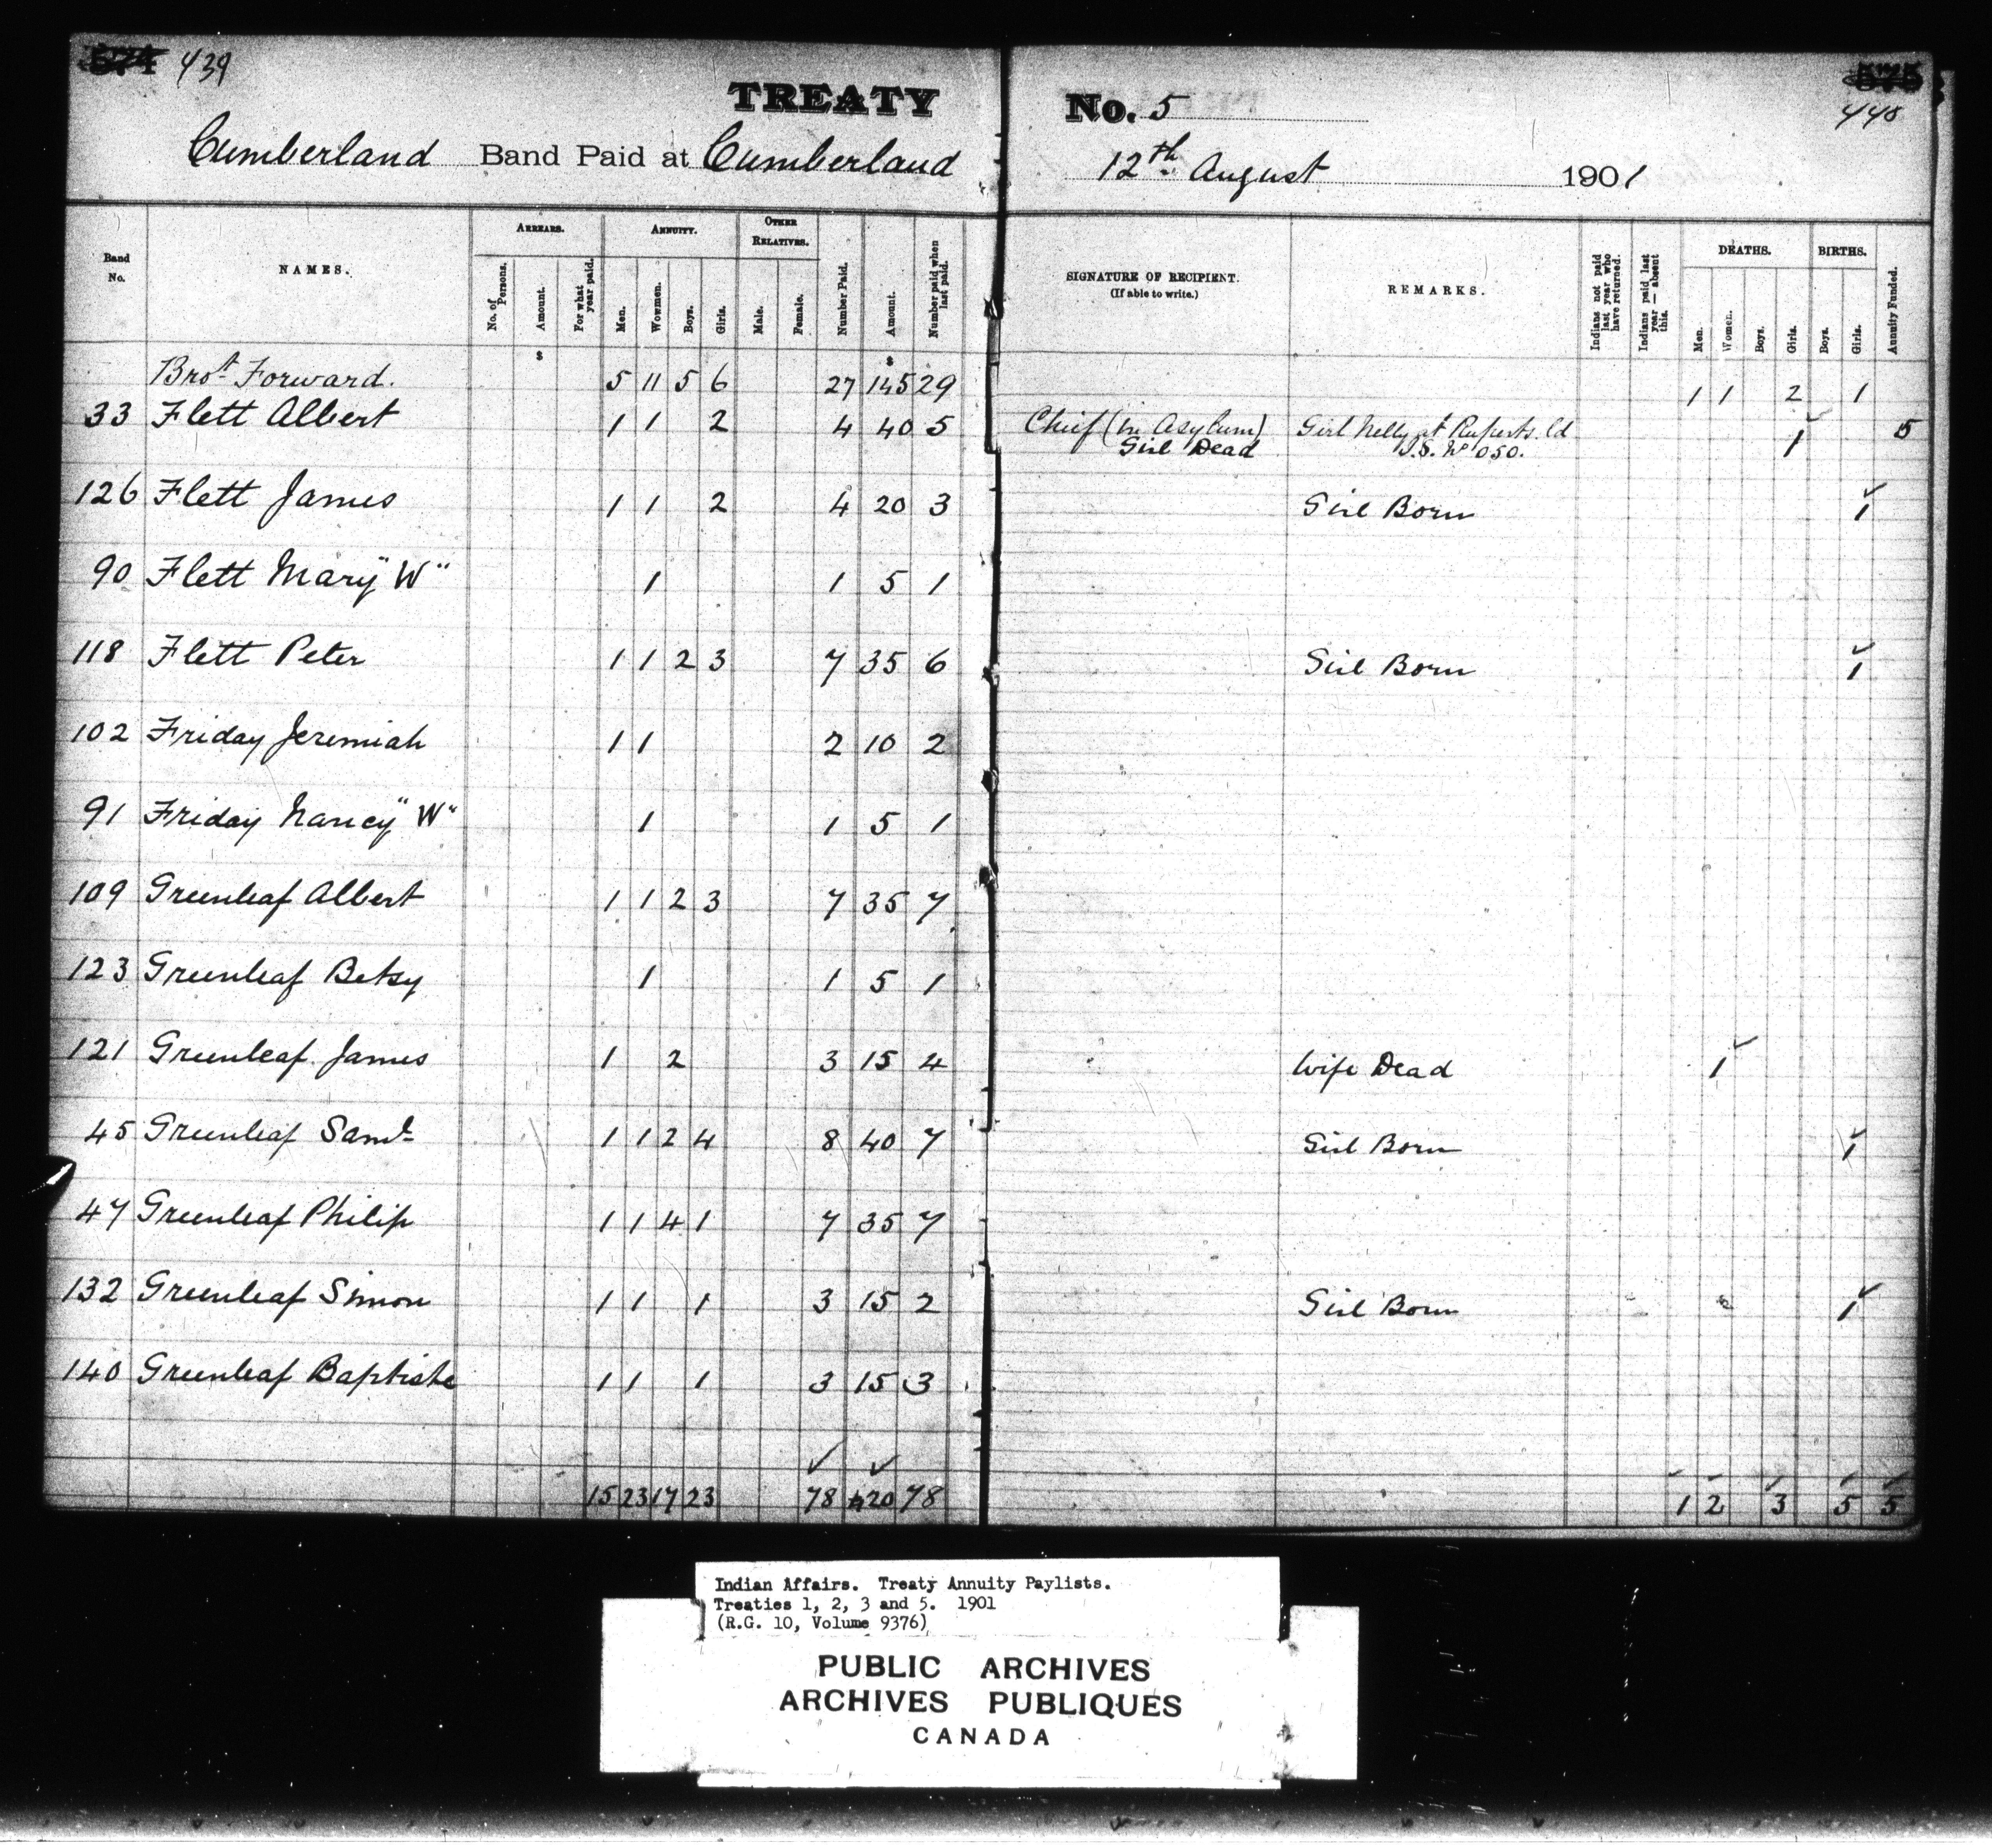 574 439
TREATY No. 5
575
440
Cumberland Band Paid at Cumberland 12th August 1901
Band No. NAMES. ARREARS. ANNUITY. OTHER RELATIVES. Number Paid. Amount. Number paid when last paid. SIGNATURE OF RECIPIENT. (If able to write.) REMARKS. Indians not paid last year who have returned. Indians paid last year — absent this. DEATHS. BIRTHS. Annuity Funded.
No. of Persons. Amount. For what year paid. Men. Women. Boys. Girls. Male. Female. Men. Women. Boys. Girls. Boys. Girls.
$ $
Brot Forward. 5 11 5 6 27 145 29 1 1 2 1
33 Flett Albert 1 1 2 4 40 5 Chief (in Asylum) Girl Nelly at Ruperts Ld 1 5
Girl Dead I.S. No 050.
126 Flett James 1 1 2 4 20 3 Girl Born 1
90 Flett Mary "W" 1 1 5 1
118 Flett Peter 1 1 2 3 7 35 6 Girl Born 1
102 Friday Jeremiah 1 1 2 10 2
91 Friday Nancy "W" 1 1 5 1
109 Greenleaf Albert 1 1 2 3 7 35 7
123 Greenleaf Betsy 1 1 5 1
121 Greenleaf James 1 2 3 15 4 Wife Dead 1
45 Greenleaf Saml 1 1 2 4 8 40 7 Girl Born 1
47 Greenleaf Philip 1 1 4 1 7 35 7
132 Greenleaf Simon 1 1 1 3 15 2 Girl Born 1
140 Greenleaf Baptiste 1 1 1 3 15 3
15 23 17 23 78 420 78 1 2 3 5 5
Indian Affairs. Treaty Annuity Paylists.
Treaties 1, 2, 3 and 5. 1901
(R.G. 10, Volume 9376)
PUBLIC ARCHIVES
ARCHIVES PUBLIQUES
CANADA